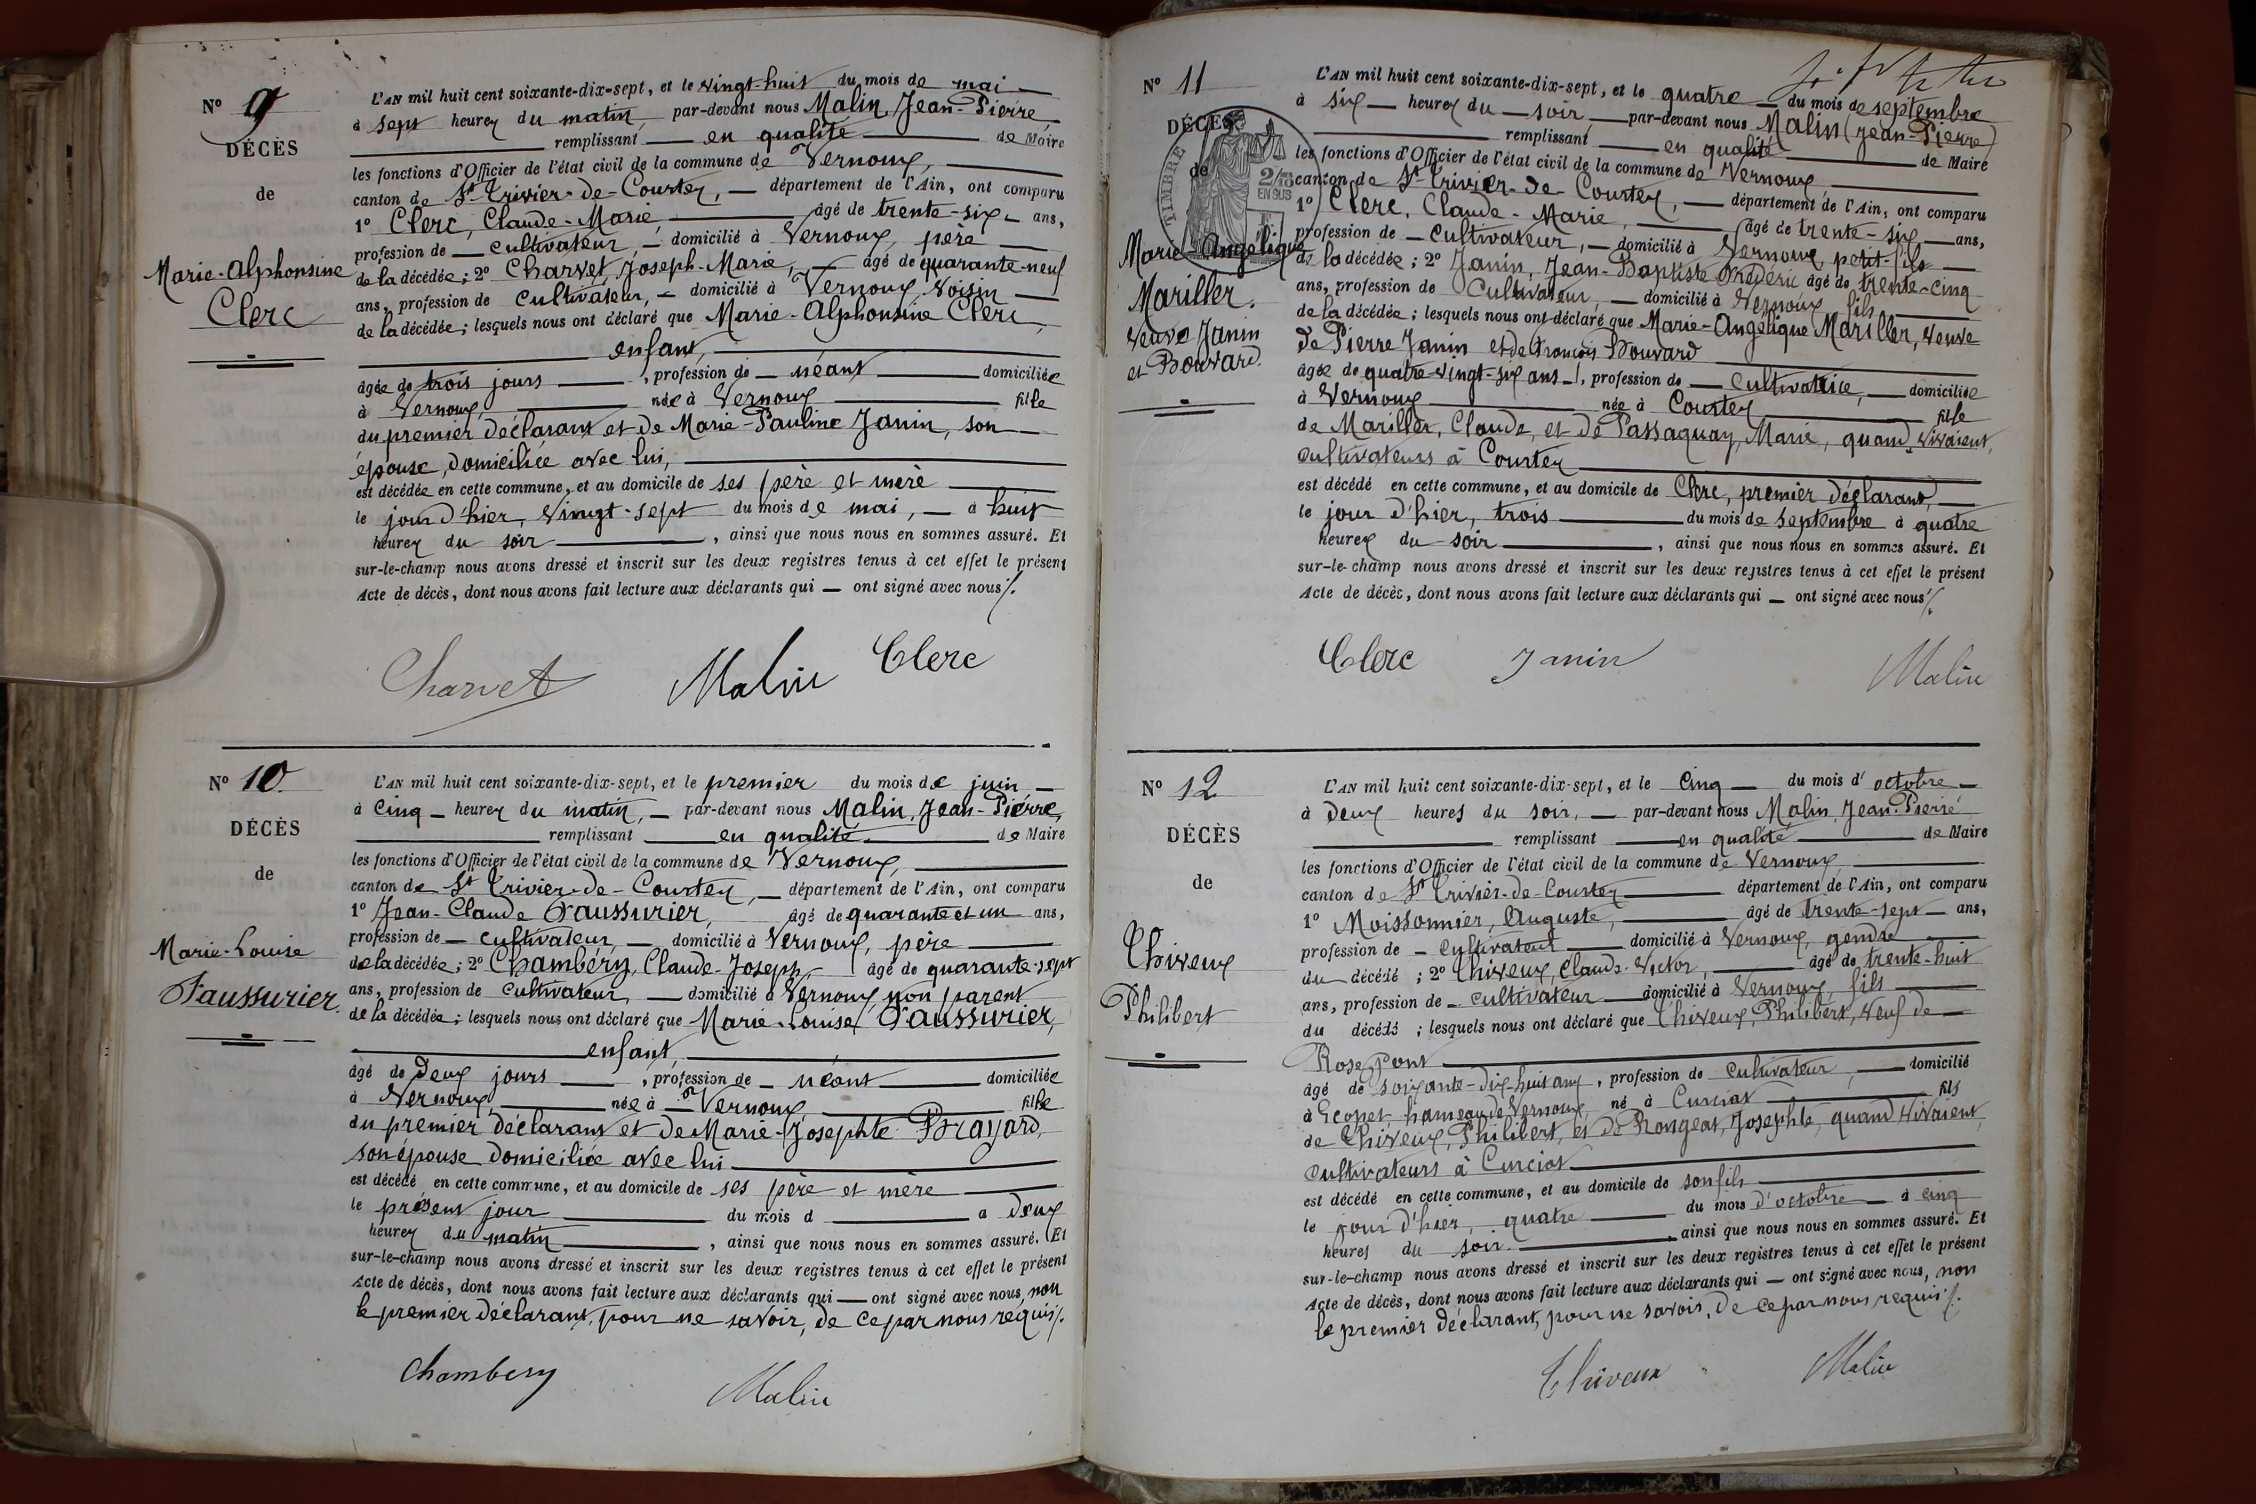 N° 9
DÉCÈS
de
Marie-Alphonsine
Clerc
L'AN mil huit cent soixante-dix-sept, et le vingt-huit du mois de mai
à sept heures du matin par-devant nous Malin, Jean-Pierre,
remplissant en qualité de Maire
les fonctions d'Officier de l'état civil de la commune de Vernoux,
canton de St Trivier-de-Courtes, département de l'Ain, ont comparu
1° Clerc, Claude-Marie, âgé de trente-six ans,
profession de cultivateur, domicilié à Vernoux, père
de la décédée ; 2° Charvet, Joseph-Marie, âgé de quarante-neuf
ans, profession de cultivateur, domicilié à Vernoux, voisin
de la décédée ; lesquels nous ont déclaré que Marie-Alphonsine Clerc,
enfant,
âgée de trois jours , profession de néant domiciliée
à Vernoux, née à Vernoux fille
du premier déclarant et de Marie-Pauline Janin, son
épouse, domiciliée avec lui,
est décédée en cette commune, et au domicile de ses père et mère
le jour d'hier, vingt-sept du mois de mai, à huit
heures du soir , ainsi que nous nous en sommes assuré. Et
sur-le-champ nous avons dressé et inscrit sur les deux registres tenus à cet effet le présent
Acte de décès, dont nous avons fait lecture aux déclarants qui — ont signé avec nous./.
Charvet Malin Clerc
N° 10
DÉCÈS
de
Marie-Louise
Faussurier.
L'AN mil huit cent soixante-dix-sept, et le premier du mois de juin
à cinq heures du matin, par-devant nous Malin, Jean-Pierre,
remplissant en qualité de Maire
les fonctions d'Officier de l'état civil de la commune de Vernoux,
canton de St Trivier-de-Courtes, département de l'Ain, ont comparu
1° Jean-Claude Faussurier, âgé de quarante et un ans,
profession de cultivateur, domicilié à Vernoux, père
de la décédée ; 2° Chambéry, Claude-Joseph, âgé de quarante-sept
ans, profession de cultivateur, domicilié à Vernoux non parent
de la décédée ; lesquels nous ont déclaré que Marie-Louise Faussurier,
enfant,
âgé de deux jours , profession de néant domiciliée
à Vernoux, née à Vernoux, fille
du premier déclarant et de Marie-Josephte Brayard,
son épouse domiciliée avec lui
est décédé en cette commune, et au domicile de ses père et mère
le présent jour du mois d à deux
heures du matin , ainsi que nous nous en sommes assuré. Et
sur-le-champ nous avons dressé et inscrit sur les deux registres tenus à cet effet le présent
Acte de décès, dont nous avons fait lecture aux déclarants qui — ont signé avec nous, non
le premier déclarant, pour ne savoir, de ce par nous requis./.
Chambery Malin
N° 11
DÉCÈS
de
TIMBRE
2/10
EN SUS
Marie-Angélique
Mariller.
veuve Janin
et Bouvard.
L'AN mil huit cent soixante-dix-sept, et le quatre du mois de septembre
à six heures du soir par-devant nous Malin (Jean-Pierre)
remplissant en qualité de Maire
les fonctions d'Officier de l'état civil de la commune de Vernoux,
canton de St Trivier-de-Courtes, département de l'Ain, ont comparu
1° Clerc, Claude-Marie, âgé de trente-six ans,
profession de cultivateur, domicilié à Vernoux, petit-fils
de la décédée ; 2° Janin, Jean-Baptiste Frédéric âgé de trente-cinq
ans, profession de cultivateur, domicilié à Vernoux fils
de la décédée ; lesquels nous ont déclaré que Marie-Angélique Mariller, veuve
de Pierre Janin et de François Bouvard
âgée de quatre-vingt-six ans , profession de cultivatrice, domiciliée
à Vernoux née à Courtes fille
de Mariller, Claude, et de Passaquay, Marie, quand vivaient,
cultivateurs à Courtes
est décédé en cette commune, et au domicile de Clerc, premier déclarant,
le jour d'hier, trois du mois de septembre à quatre
heures du soir , ainsi que nous nous en sommes assuré. Et
sur-le-champ nous avons dressé et inscrit sur les deux registres tenus à cet effet le présent
Acte de décès, dont nous avons fait lecture aux déclarants qui — ont signé avec nous./.
Clerc Janin Malin
N° 12
DÉCÈS
de
Thiveux
Philibert
L'AN mil huit cent soixante-dix-sept, et le cinq du mois d'octobre
à deux heures du soir, par-devant nous Malin, Jean-Pierre
remplissant en qualité de Maire
les fonctions d'Officier de l'état civil de la commune de Vernoux,
canton de St Trivier-de-Courtes département de l'Ain, ont comparu
1° Moissonnier, Auguste, âgé de trente-sept ans,
profession de cultivateur domicilié à Vernoux, gendre
du décédé ; 2° Thiveux, Claude-Victor, âgé de trente-huit
ans, profession de cultivateur domicilié à Vernoux, fils
du décédé ; lesquels nous ont déclaré que Thiveux, Philibert, veuf de
Rose Pont
âgé de soixante-dix-huit ans, profession de cultivateur, domicilié
à hameau de Vernoux, né à Curciat fils
de Thiveux, Philibert, et de Rongeat, Josephte, quand vivaient,
cultivateurs à Curciat
est décédé en cette commune, et au domicile de son fils
le jour d'hier, quatre du mois d'octobre à cinq
heures du soir , ainsi que nous nous en sommes assuré. Et
sur-le-champ nous avons dressé et inscrit sur les deux registres tenus à cet effet le présent
Acte de décès, dont nous avons fait lecture aux déclarants qui — ont signé avec nous, non
le premier déclarant, pour ne savoir, de ce par nous requis./.
Thiveux Malin